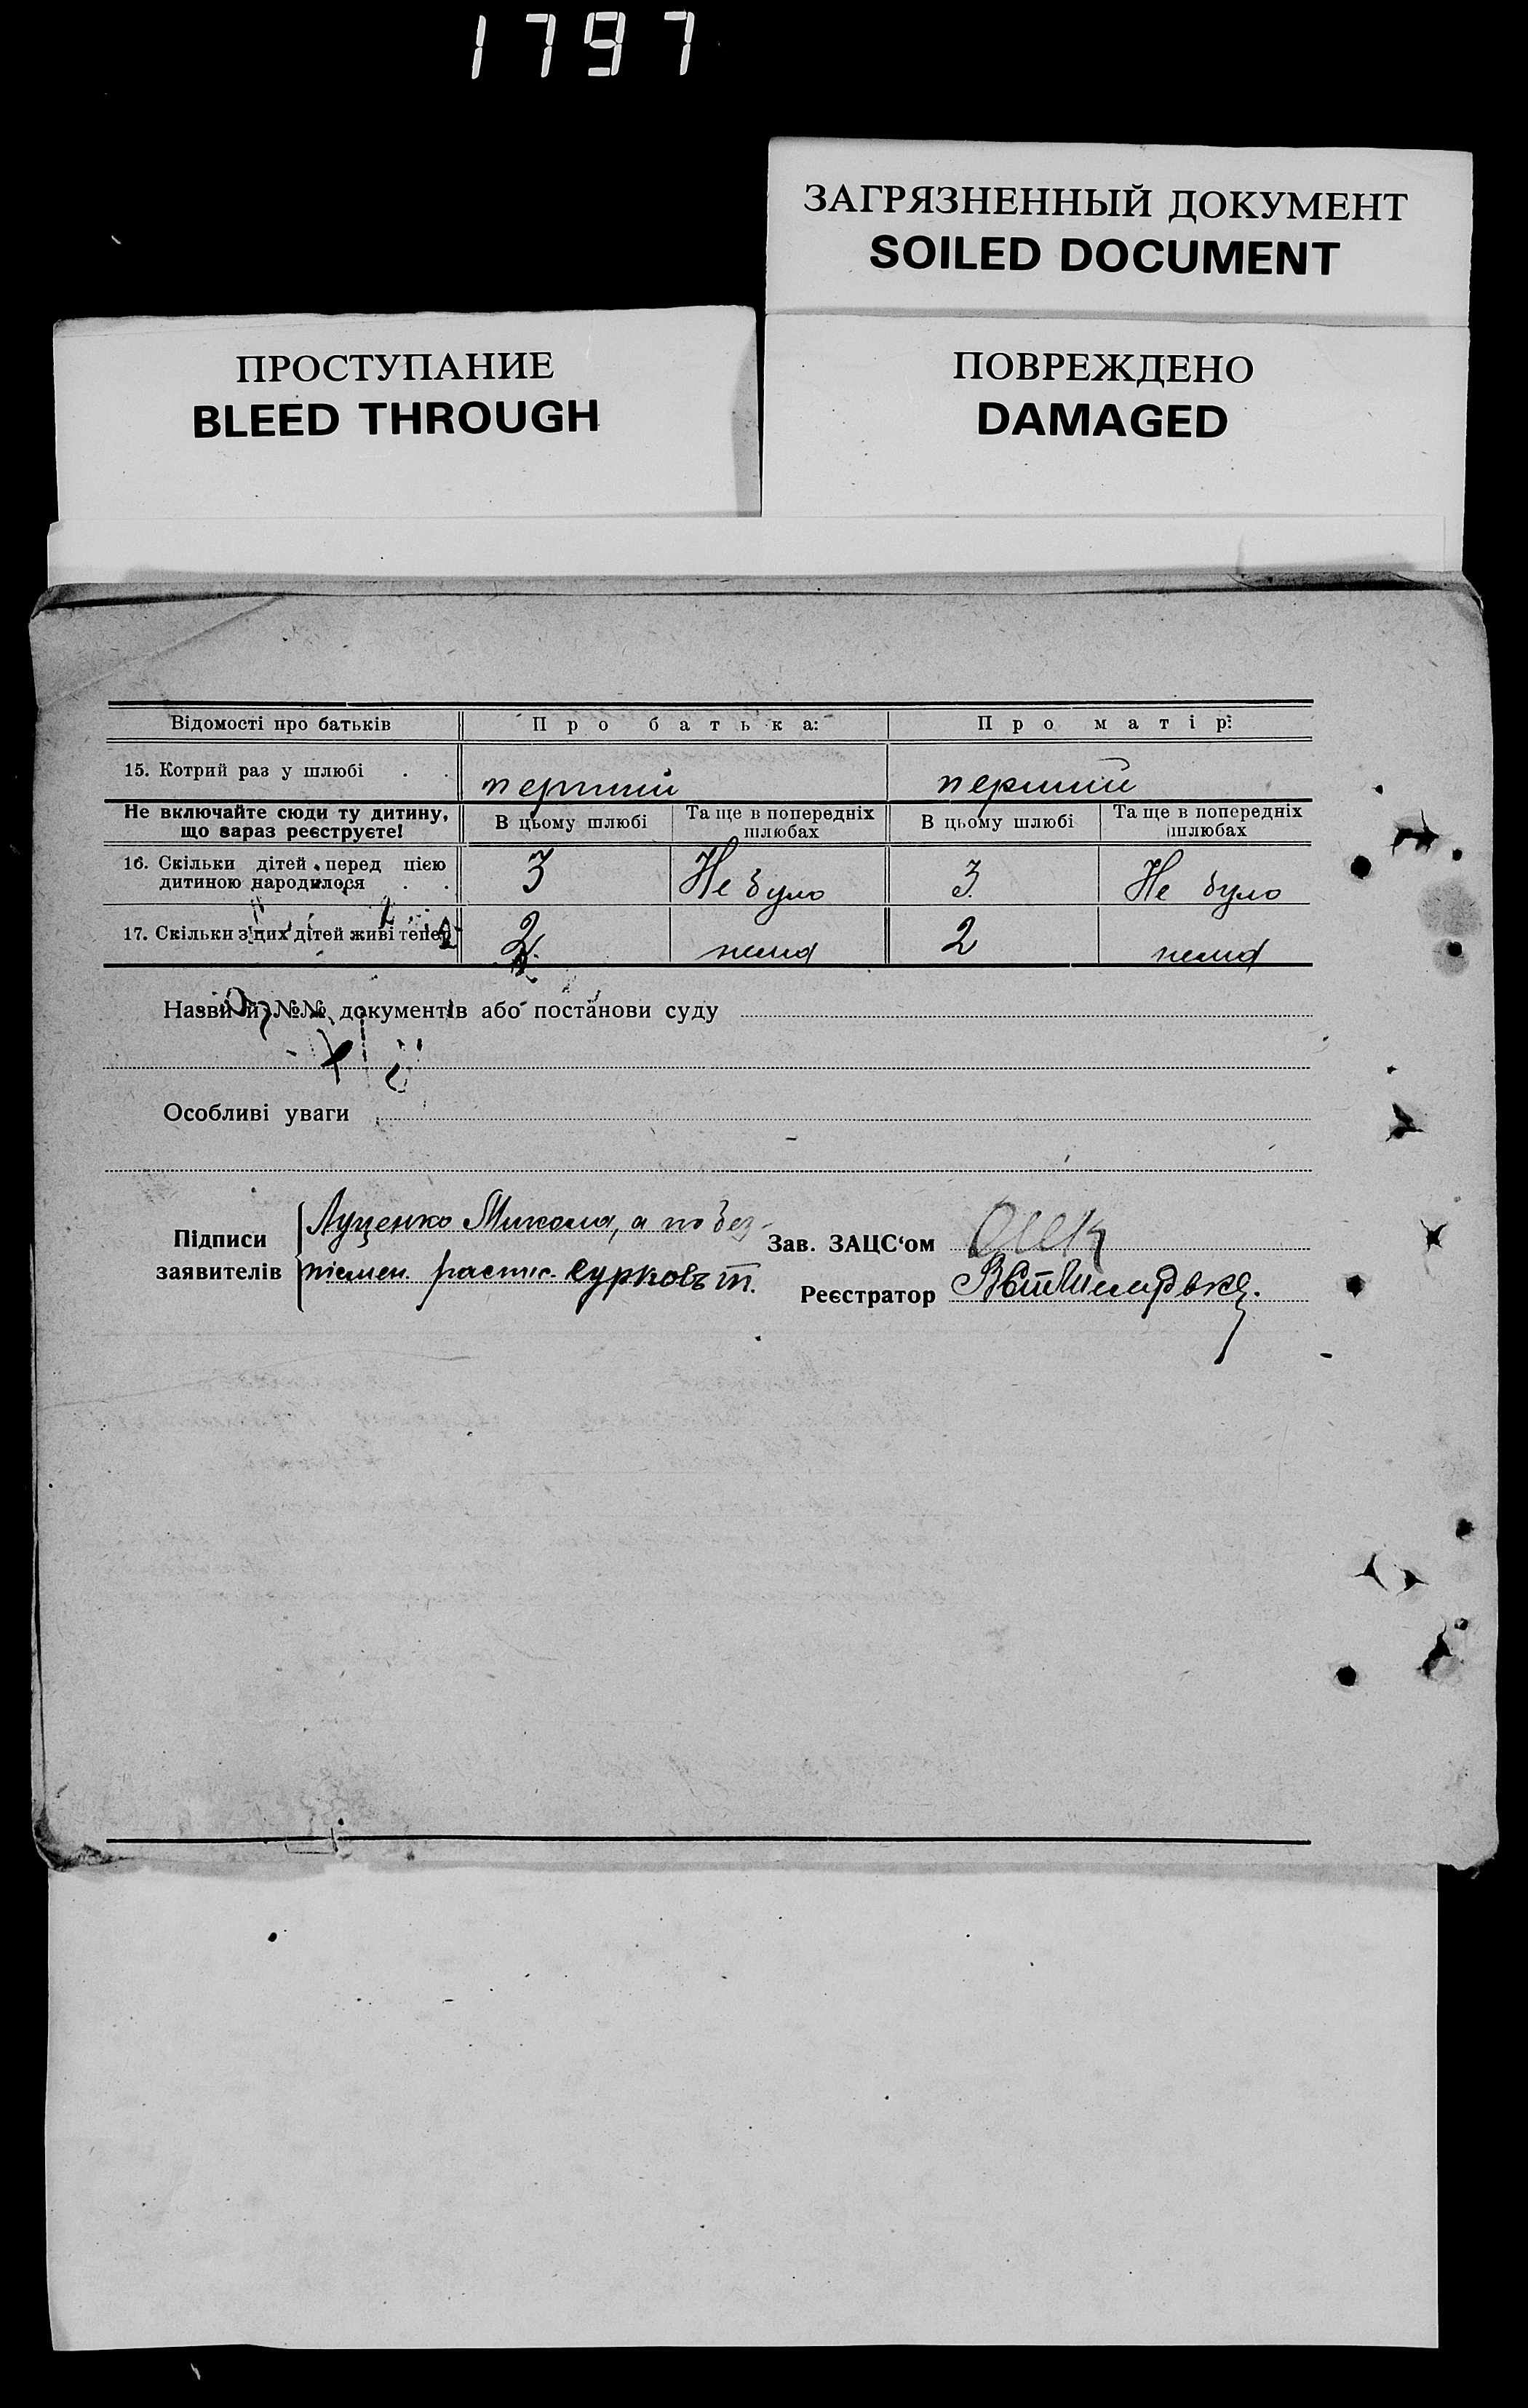 1797
ЗАГРЯЗНЕННЫЙ ДОКУМЕНТ
SOILED DOCUMENT
ПРОСТУПАНИЕ
BLEED THROUGH
ПОВРЕЖДЕНО
DAMAGED
Відомості про батьків Про батька: Про матір:
15. Котрий раз у шлюбі . . перший перший
Не включайте сюди ту дитину, що зараз реєструєте! В цьому шлюбі Та ще в попередніх шлюбах В цьому шлюбі Та ще в попередніх шлюбах
16. Скільки дітей перед цією
дитиною народилося . . 3 Не було 3 Не було
17. Скільки з цих дітей живі тепер 2 нема 2 нема
Назви й №№ документів або постанови суду
Особливі уваги
Підписи заявителів
Луценко Микола, а по без-
писмен. распис.
Зав. ЗАЦС‘ом
Реєстратор